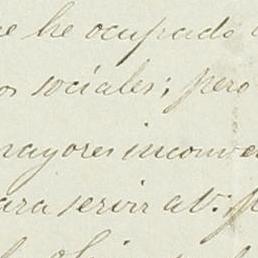 he ocupado
sociales; pero
mayores inconve
para servir at: